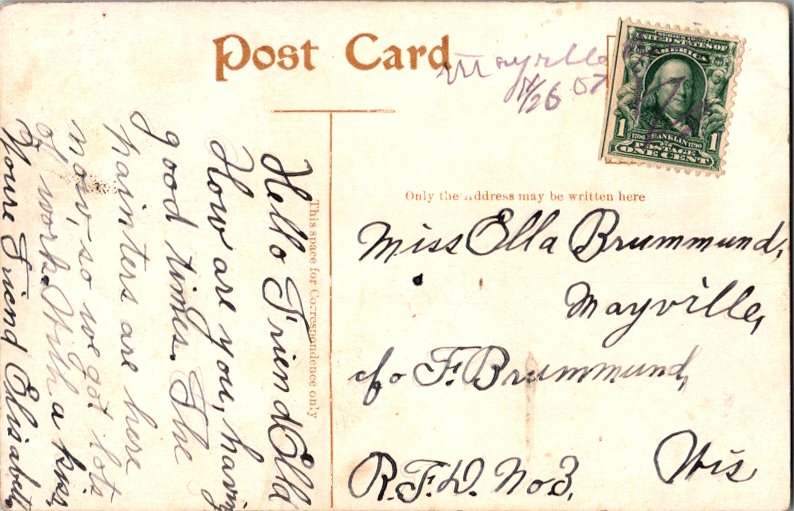 Post Card
Mayville
11/26 07
SERIES 1902
UNITED STATES OF
AMERICA
1 1706 FRANKLIN 1790 1
POSTAGE
ONE CENT
This space for Correspondence only
Only the Address may be written here
Hello Friend Ella
How are you, having
good times. The
painters are here
now, so we got lots
of work. With a kiss,
Youre Friend Elisabeth
Miss Ella Brummund,
Mayville,
c/o F. Brummund,
R.F.D. No 3,
Wis